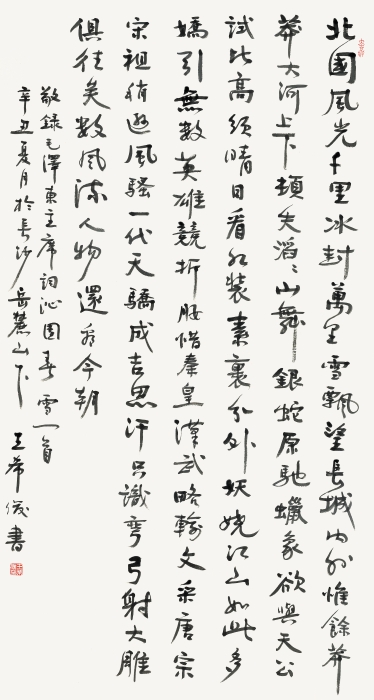 北國風光千里冰封萬里雪飄望長城內外惟餘莽
莽大河上下頓失滔〻山舞銀蛇原馳蠟象欲與天公
試比高須晴日看紅裝素裹分外妖嬈江山如此多
嬌引無數英雄競折腰惜秦皇漢武略輸文采唐宗
宋祖稍遜風騷一代天驕成吉思汗只識彎弓射大雕
俱往矣數風流人物還看今朝
敬錄毛澤東主席詞沁園春雪一首
辛丑夏月於長沙岳麓山下王希俊書